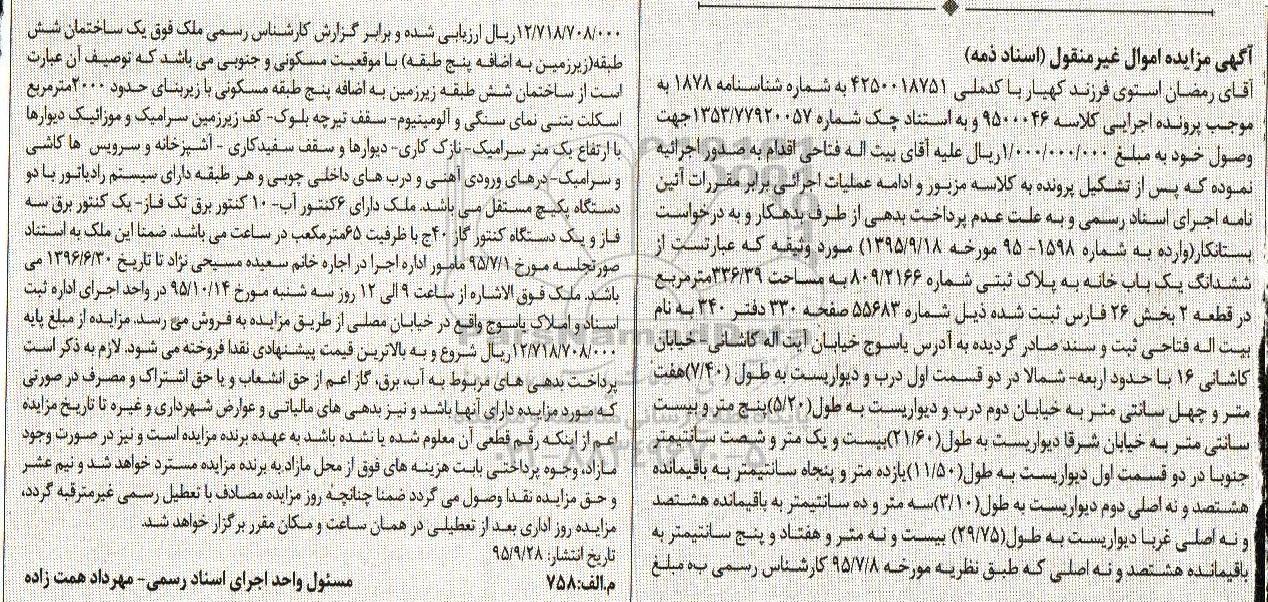 آگهی مزایده اموال غیرمنقول (اسناد ذمه)
آقای رمضان استوی فرزند کهیار با کدملی ۴۲۵۰۰۱۸۷۵۱ به شماره شناسنامه ۱۸۷۸ به
موجب پرونده اجرایی کلاسه ۹۵۰۰۰۴۶ و به استناد چک شماره ۱۳۵۳/۷۷۹۲۰۰۵۷ جهت
وصول خود به مبلغ ۱/۰۰۰/۰۰۰/۰۰۰ریال علیه آقای بیت اله فتاحی اقدام به صدور اجرائیه
نموده که پس از تشکیل پرونده به کلاسه مزبور و ادامه عملیات اجرائی برابر مقررات آئین
نامه اجرای اسناد رسمی و به علت عدم پرداخت بدهی از طرف بدهکار و به درخواست
بستانکار(وارده به شماره ۱۵۹۸- ۹۵ مورخه ۱۳۹۵/۹/۱۸) مورد وثیقه که عبارتست از
ششدانگ یک باب خانه به پلاک ثبتی شماره ۸۰۹/۲۱۶۶ به مساحت ۳۳۶/۳۹مترمربع
در قطعه ۲ بخش ۲۶ فارس ثبت شده ذیل شماره ۵۵۶۸۳ صفحه ۳۳۰ دفتر ۳۴۰ به نام
بیت اله فتاحی ثبت و سند صادر گردیده به آدرس یاسوج خیابان آیت اله کاشانی- خیابان
کاشانی ۱۶ با حدود اربعه- شمالا در دو قسمت اول درب و دیواریست به طول (۷/۴۰)هفت
متر و چهل سانتی متر به خیابان دوم درب و دیواریست به طول(۵/۲۰)پنج متر و بیست
سانتی متر به خیابان شرقا دیواریست به طول(۲۱/۶۰)بیست و یک متر و شصت سانتیمتر
جنوبا در دو قسمت اول دیواریست به طول(۱۱/۵۰)یازده متر و پنجاه سانتیمتر به باقیمانده
هشتصد و نه اصلی دوم دیواریست به طول(۳/۱۰)سه متر و ده سانتیمتر به باقیمانده هشتصد
و نه اصلی غربا دیواریست به طول(۲۹/۷۵) بیست و نه متر و هفتاد و پنج سانتیمتر به
باقیمانده هشتصد و نه اصلی که طبق نظریه مورخه ۹۵/۷/۸ کارشناس رسمی به مبلغ
۱۲/۷۱۸/۷۰۸/۰۰۰ریال ارزیابی شده و برابر گزارش کارشناس رسمی ملک فوق یک ساختمان شش
طبقه(زیرزمین به اضافه پنج طبقه) با موقعیت مسکونی و جنوبی می باشد که توصیف آن عبارت
است از ساختمان شش طبقه زیرزمین به اضافه پنج طبقه مسکونی با زیربنای حدود ۲۰۰۰مترمربع
اسکلت بتنی نمای سنگی و آلومینیوم- سقف تیرچه بلوک- کف زیرزمین سرامیک و موزائیک دیوارها
با ارتفاع یک متر سرامیک- نازک کاری- دیوارها و سقف سفیدکاری - آشپزخانه و سرویس ها کاشی
و سرامیک- درهای ورودی آهنی و درب های داخلی چوبی و هر طبقه دارای سیستم رادیاتور با دو
دستگاه پکیج مستقل می باشد. ملک دارای ۶کنتور آب- ۱۰ کنتور برق تک فاز- یک کنتور برق سه
فاز و یک دستگاه کنتور گاز ۴۰ج با ظرفیت ۶۵مترمکعب در ساعت می باشد. ضمنا این ملک به استناد
صورتجلسه مورخ ۹۵/۷/۱ مامور اداره اجرا در اجاره خانم سعیده مسیحی نژاد تا تاریخ ۱۳۹۶/۶/۳۰ می
باشد. ملک فوق الاشاره از ساعت ۹ الی ۱۲ روز سه شنبه مورخ ۹۵/۱۰/۱۴ در واحد اجرای اداره ثبت
اسناد و املاک یاسوج واقع در خیابان مصلی از طریق مزایده به فروش می رسد. مزایده از مبلغ پایه
۱۲/۷۱۸/۷۰۸/۰۰۰ریال شروع و به بالاترین قیمت پیشنهادی نقدا فروخته می شود. لازم به ذکر است
پرداخت بدهی های مربوط به آب، برق، گاز اعم از حق انشعاب و یا حق اشتراک و مصرف در صورتی
که مورد مزایده دارای آنها باشد و نیز بدهی های مالیاتی و عوارض شهرداری و غیره تا تاریخ مزایده
اعم از اینکه رقم قطعی آن معلوم شده یا نشده باشد به عهده برنده مزایده است و نیز در صورت وجود
مازاد، وجوه پرداختی بابت هزینه های فوق از محل مازاد به برنده مزایده مسترد خواهد شد و نیم عشر
و حق مزایده نقدا وصول می گردد ضمنا چنانچه روز مزایده مصادف با تعطیل رسمی غیرمترقبه گردد،
مزایده روز اداری بعد از تعطیلی در همان ساعت و مکان مقرر برگزار خواهد شد.
تاریخ انتشار: ۹۵/۹/۲۸
م.الف:۷۵۸ مسئول واحد اجرای اسناد رسمی- مهرداد همت زاده
ParsNamadData
۰۲۱-۸۸۳۴۹۶۷۰-۵